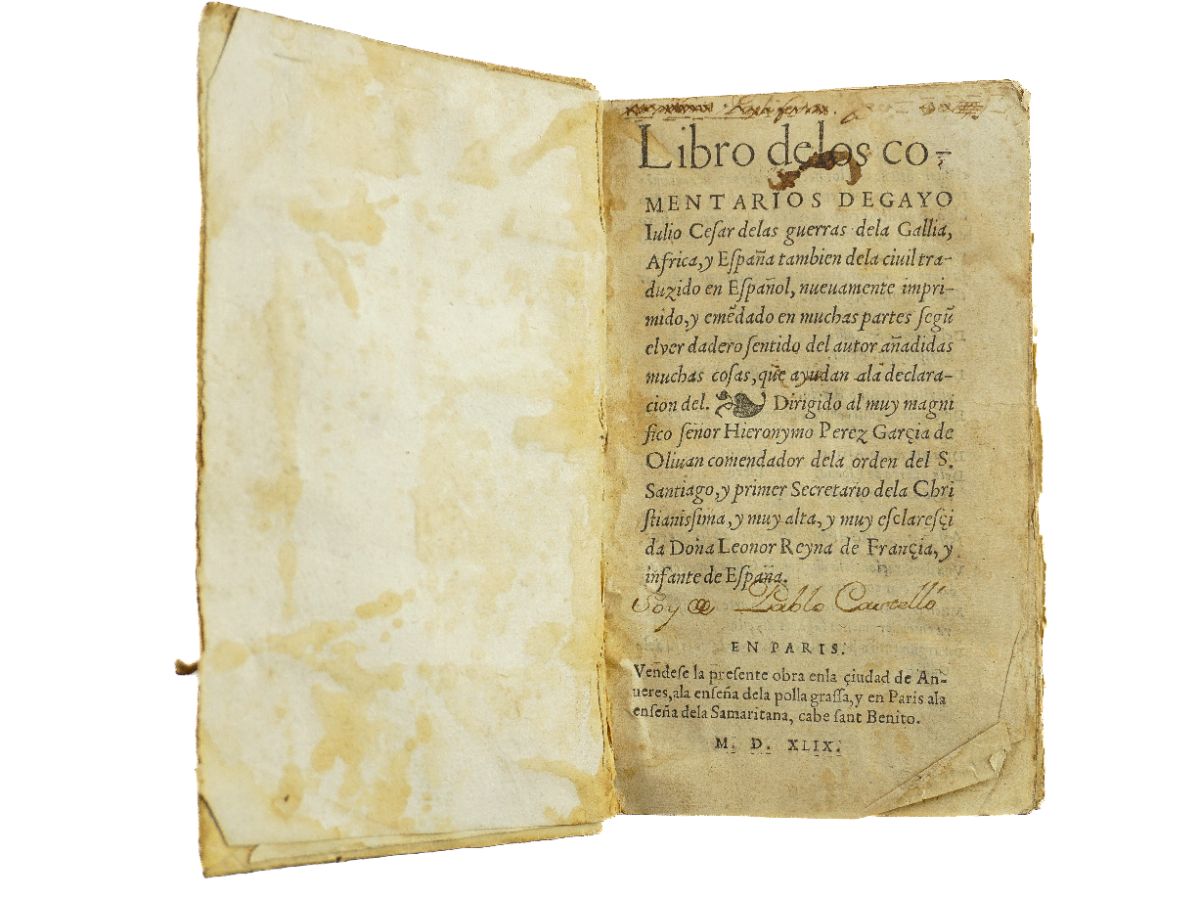 Libro delos co-
MENTARIOS DEGAYO
Iulio Ceſar delas guerras dela Gallia,
Africa, y Eſpaña tambien dela ciuil tra-
duzido en Eſpañol, nueuamente impri-
mido, y emẽdado en muchas partes ſegũ
elver dadero ſentido del autor añadidas
muchas coſas, que ayudan ala declara-
cion del. ❧ Dirigido al muy magni
fico ſeñor Hieronymo Perez Garçia de
Oliuan comendador dela orden del S.
Santiago, y primer Secretario dela Chri
ſtianiſsima, y muy alta, y muy eſclareſçi
da Doña Leonor Reyna de Françia, y
infante de Eſpaña.
Soy de Pablo
EN PARIS.
Vendeſe la preſente obra enla çiudad de An-
ueres, ala enſeña dela polla graſſa, y en Paris ala
enſeña dela Samaritana, cabe ſant Benito.
M. D. XLIX.